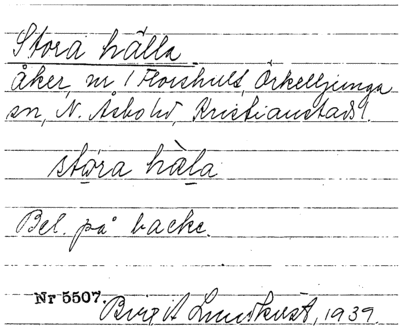 Stora hälla
Åker, nr 1 Floishult, Örkelljunga
sn, N. Åsbo hd, Kristianstads l.
stora häla
Bel. på backe.
Nr 5507. Birgit Lundkvist, 1939.